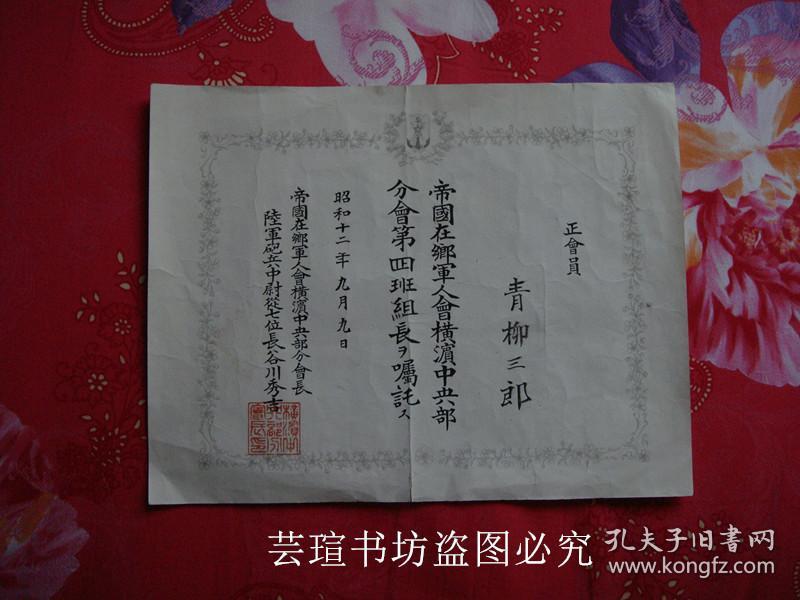 正會員
青柳三郎
帝國在郷軍人會横濱中央部
分會第四班組長ヲ囑託ス
昭和十二年九月九日
帝國在郷軍人會横濱中央部分會長
陸軍砲兵中尉從七位長谷川秀吉
芸瑄书坊盗图必究
孔夫子旧书网
www.kongfz.com